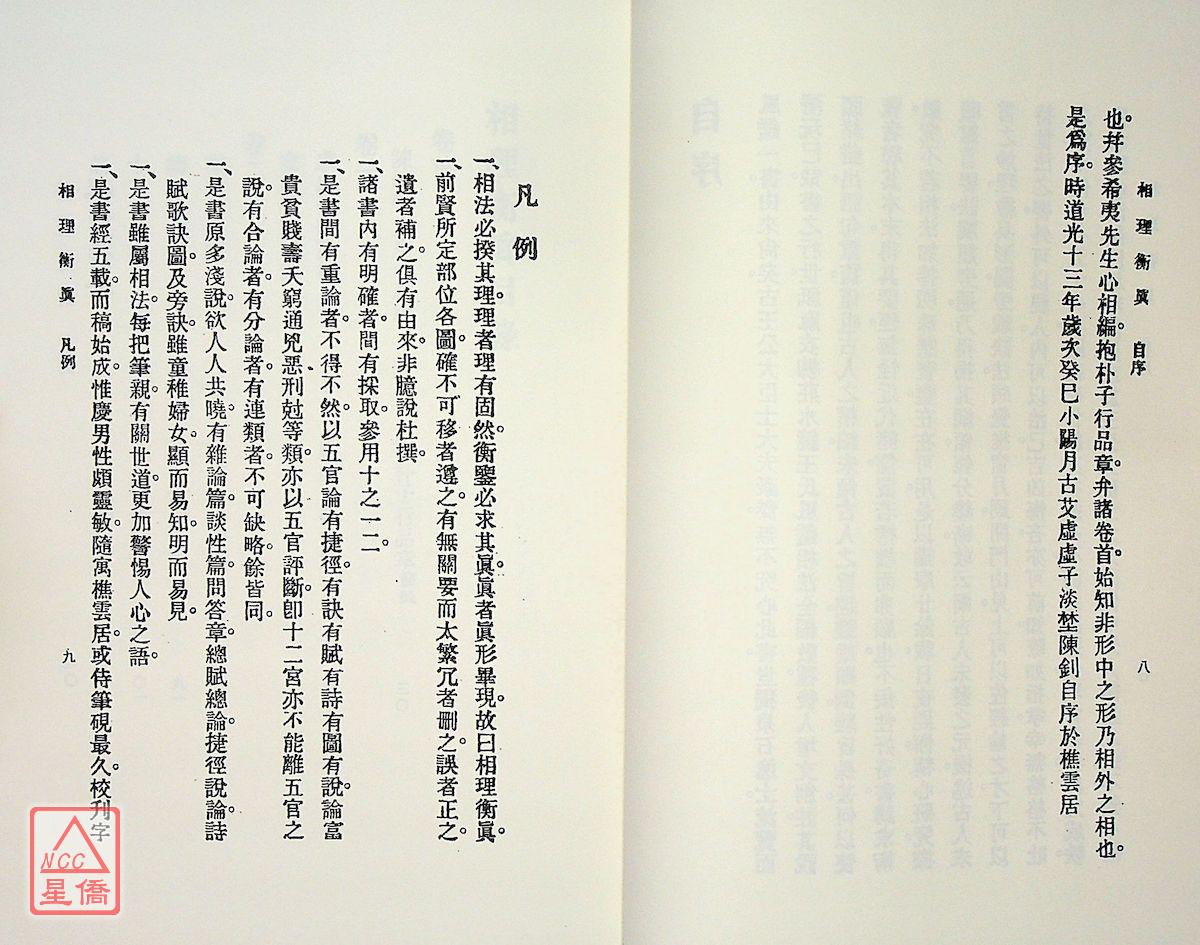 相理衡眞　自序　八
也。幷參希夷先生心相編。抱朴子行品章。弁諸卷首。始知非形中之形。乃相外之相也。
是爲序。時道光十三年歲次癸巳小陽月古艾虛虛子淡埜陳釗自序於樵雲居
凡例
一、相法必揆其理。理者理有固然。衡鑒必求其眞。眞者眞形畢現。故曰相理衡眞。
一、前賢所定部位各圖。確不可移者遵之。有無關要而太繁冗者刪之。誤者正之。
遺者補之。俱有由來。非臆說杜撰。
一、諸書內有明確者。間有採取。參用十之一二。
一、是書間有重論者。不得不然。以五官論有捷徑。有訣有賦有詩有圖有說。論富
貴貧賤壽夭窮通兇惡刑尅等類。亦以五官評斷。卽十二宮亦不能離五官之
說。有合論者。有分論者。有連類者。不可缺略。餘皆同。
一、是書原多淺說。欲人人共曉。有雜論篇。談性篇。問答章。總賦總論。捷徑說。論詩
賦歌訣圖。及旁訣。雖童稚婦女。顯而易知。明而易見。
一、是書雖屬相法。每把筆親。有關世道。更加警惕人心之語。
一、是書經五載而稿始成。惟慶男性頗靈敏。隨寓樵雲居。或侍筆硯最久。校刊字
相理衡眞　凡例　九
NCC
星僑